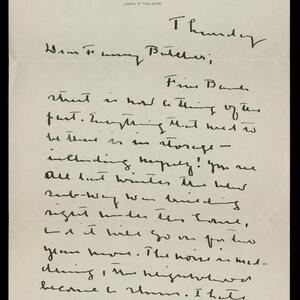 JOHN P. TOLSON
Thursday
Dear Fanny Butcher;
Five Bank
street is now a thing of the
past. Everything that used to
be there is in storage –
including myself! You see
all last winter the new
sub-way was building
right under the house,
and it will go on for two
years more. The noise is mad-
dening, the neighborhood
become a slum. I hate